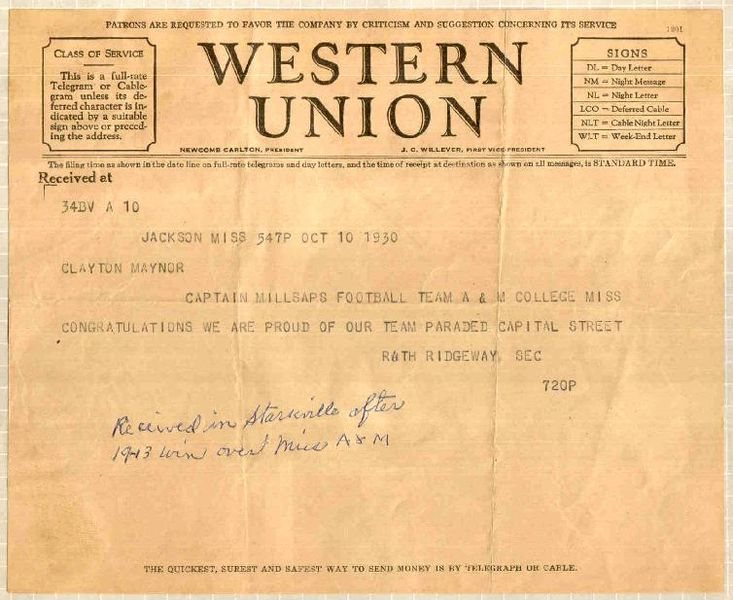 PATRONS ARE REQUESTED TO FAVOR THE COMPANY BY CRITICISM AND SUGGESTION CONCERNING ITS SERVICE
1201
CLASS OF SERVICE
This is a full-rate
Telegram or Cable-
gram unless its de-
ferred character is in-
dicated by a suitable
sign above or preced-
ing the address.
WESTERN
UNION
NEWCOMB CARLTON, PRESIDENT
J. C. WILLEVER, FIRST VICE-PRESIDENT
SIGNS
DL = Day Letter
NM = Night Message
NL = Night Letter
LCO = Deferred Cable
NLT = Cable Night Letter
WLT = Week-End Letter
The filing time as shown in the date line on full-rate telegrams and day letters, and the time of receipt at destination as shown on all messages, is STANDARD TIME.
Received at
34BV A 10
JACKSON MISS 547P OCT 10 1930
CLAYTON MAYNOR
CAPTAIN MILLSAPS FOOTBALL TEAM A & M COLLEGE MISS
CONGRATULATIONS WE ARE PROUD OF OUR TEAM PARADED CAPITAL STREET
RUTH RIDGEWAY SEC
720P
Received in Starkville after
19-13 win over Miss A & M
THE QUICKEST, SUREST AND SAFEST WAY TO SEND MONEY IS BY TELEGRAPH OR CABLE.